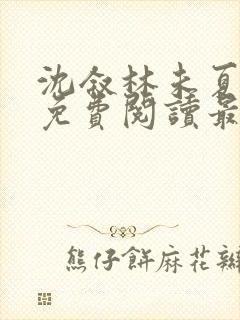 沈叙林未夏
免費閱讀最
熊仔餅麻花辮